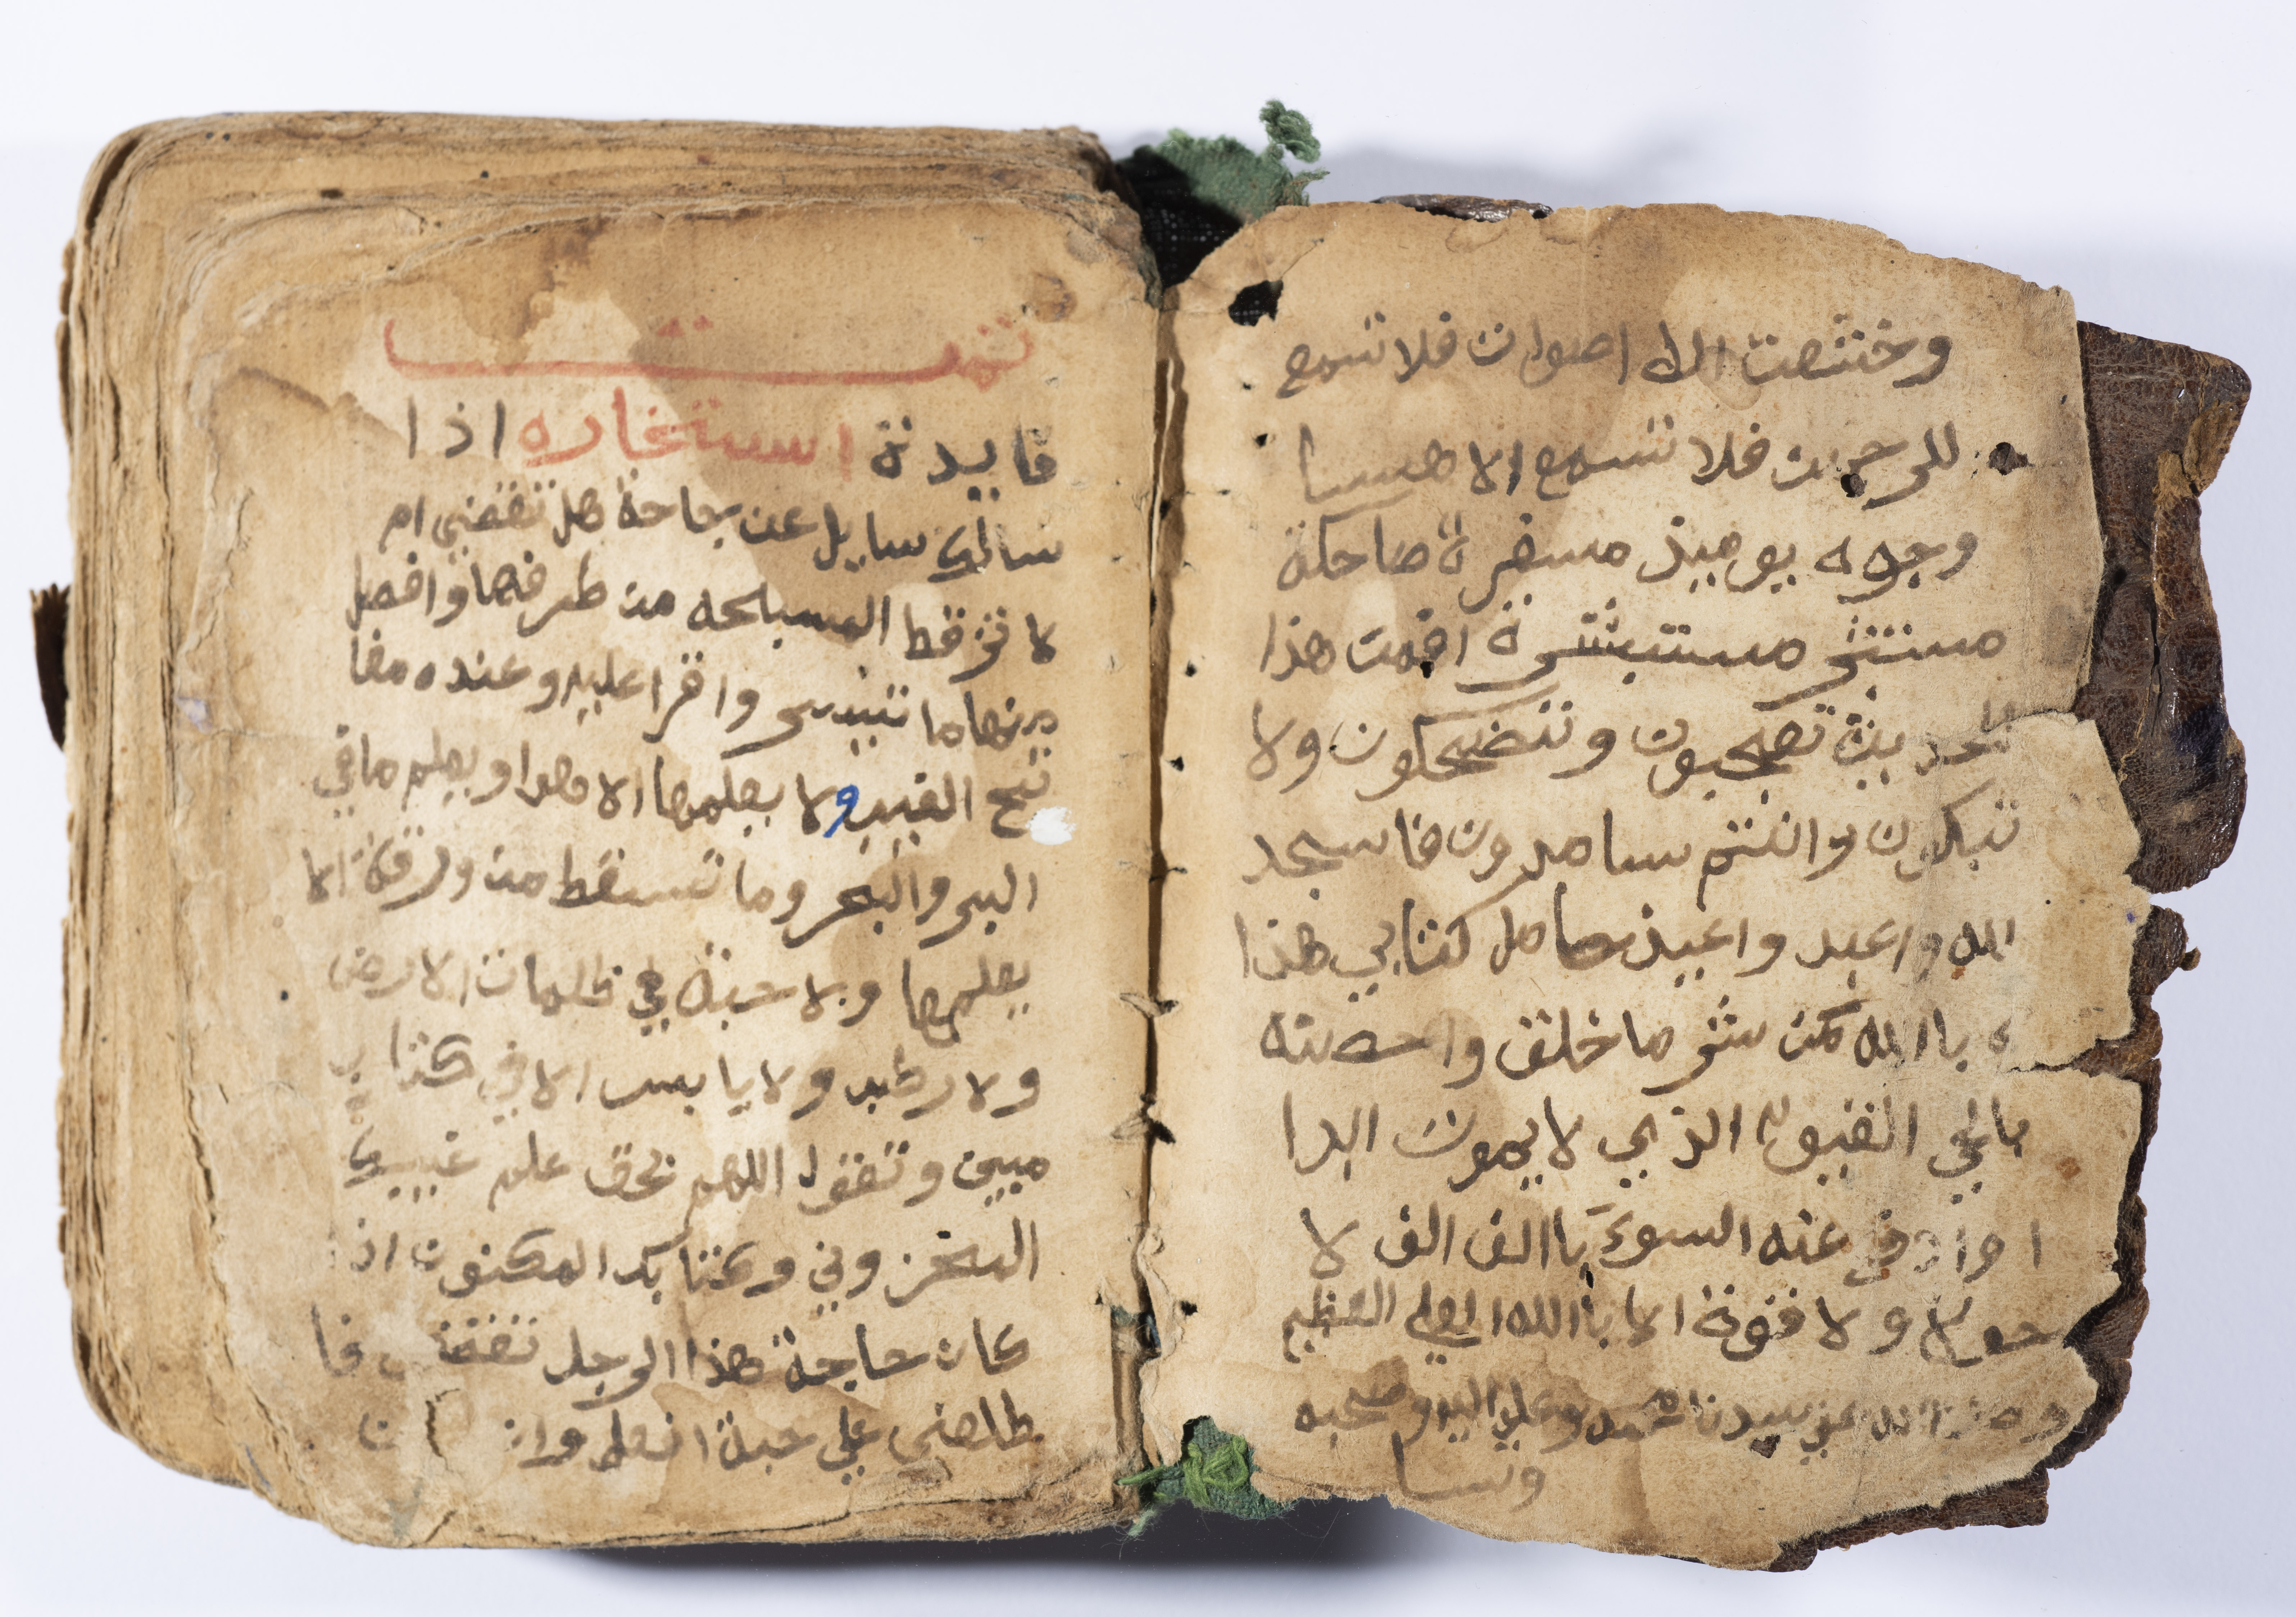 وخشعت الاصوات فلا تسمع
للرحمن فلا تسمع الا همسا
وجوه يوميذ مسفرة ضاحكة
مستبشرة افمن هذا
الحديث تعجبون وتتضحكون ولا
تبكون وانتم سامدون فاسجد
الله واعبد واعيذ حامل كتابي هذا
باالله من شر ما خلق واحصنته
بالحي القيوم الذي لا يموت ابدا
ا وادفع عنه السوء باالف الف لا
حول ولا قوة الا باالله العلي العظيم
وصلى الله على سيدنا محمد وعلى اليه وصحبه
وسلم
تمت
فاييدة استخاره اذا
سالك سايل عن بحاجة هل تقضي ام
لا فرقط المسبحه من طرفها وافصل
منها ما تيسر واقرا عليه وعنده مفا
تيح الغيب ولا يعلمها الا هوا ويعلم ما في
البر والبحر وما تسقط من ورقة الا
يعلمها ولا حبة في ظلمات الارض
ولا رطب ولا يابس الا في كتاب
مبين وتقول اللهم بحق علم غيبك
المخزوني وكتابك المكنون اذا
كان حاجة هذا الرجل تقضى فا
طلعني على حبة انعلم وان